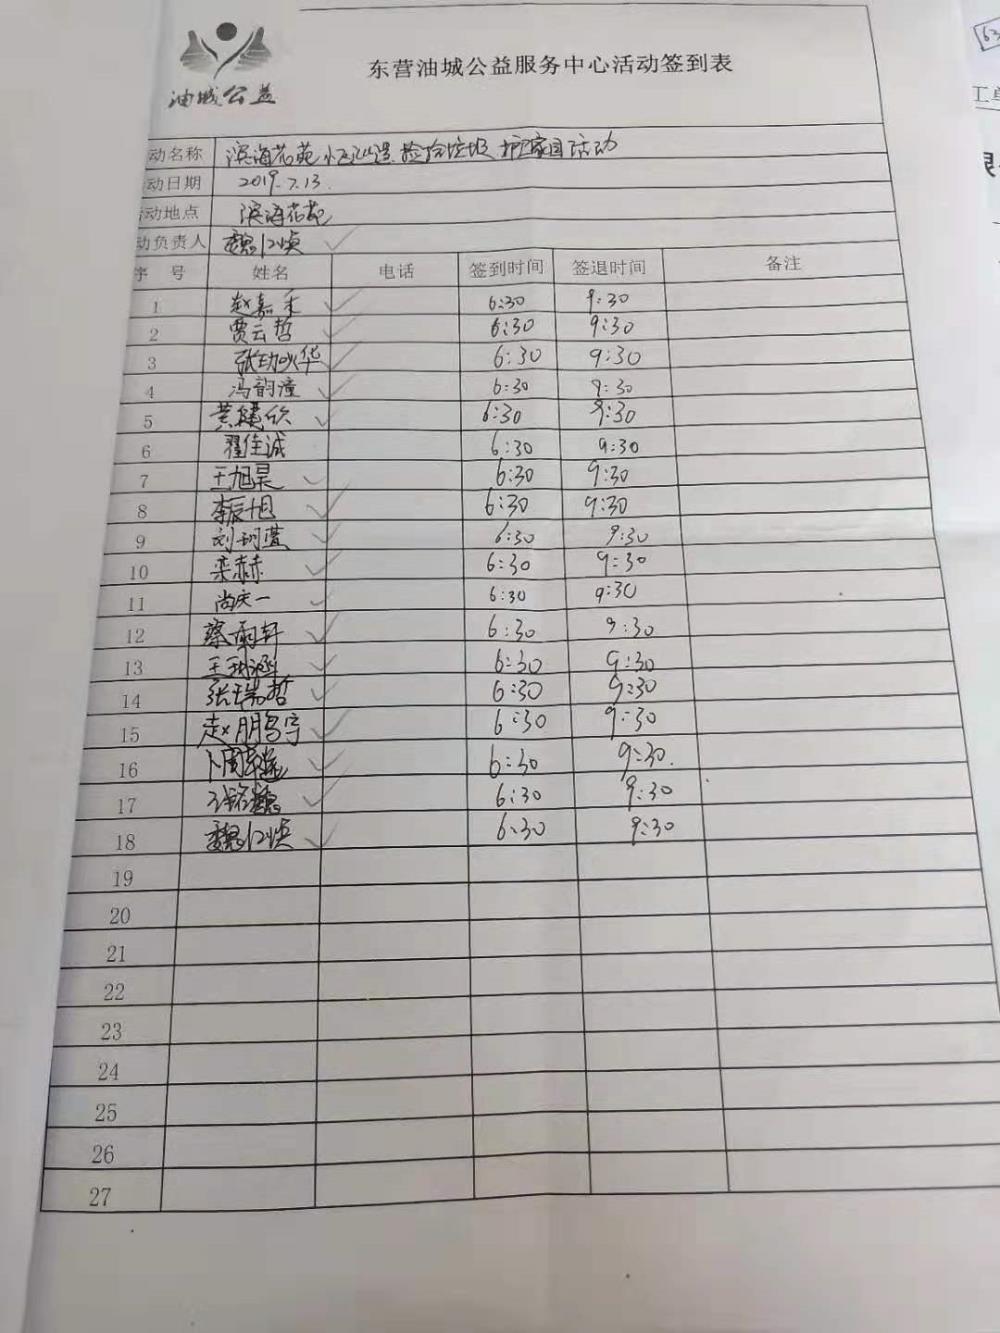 油城公益
东营油城公益服务中心活动签到表
动名称 滨海花苑 捡拾垃圾 护家园活动
动日期 2019.7.13.
动地点 滨海花苑
动负责人 魏
序 号 姓名 电话 签到时间 签退时间 备注
1 赵嘉禾 6:30 9:30
2 贾云哲 6:30 9:30
3 张 华 6:30 9:30
4 冯韵潼 6:30 9:30
5 黄建欣 6:30 9:30
6 翟佳诚 6:30 9:30
7 王旭昊 6:30 9:30
8 李辰旭 6:30 9:30
9 刘 萱 6:30 9:30
10 栾赫赫 6:30 9:30
11 尚庆一 6:30 9:30
12 蔡雨轩 6:30 9:30
13 王 涵 6:30 9:30
14 张瑞哲 6:30 9:30
15 赵鹏宇 6:30 9:30
16 卜周 6:30 9:30.
17 6:30 9:30
18 魏 6:30 9:30
19
20
21
22
23
24
25
26
27
工单